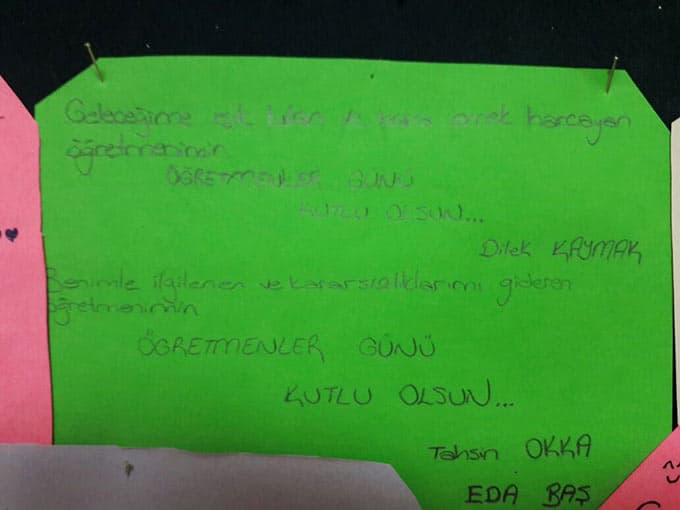 Geleceğime ışık tutan ve bana emek harcayan
öğretmenimin
ÖĞRETMENLER GÜNÜ
KUTLU OLSUN...
Dilek KAYMAK
Benimle ilgilenen ve kararsızlıklarımı gideren
öğretmenimin
ÖĞRETMENLER GÜNÜ
KUTLU OLSUN...
Tahsin OKKA
EDA BAŞ